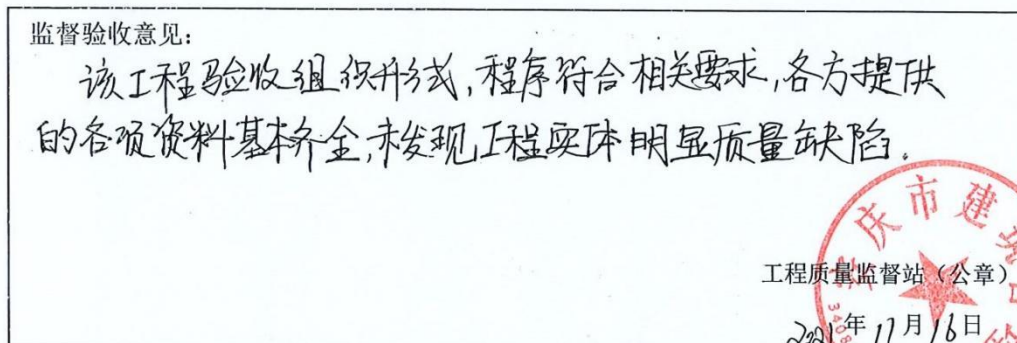 监督验收意见:
该工程验收组织形式,程序符合相关要求,各方提供
的各项资料基本齐全,未发现工程实体明显质量缺陷。
安庆市建
工程质量监督站(公章)
2021年11月16日